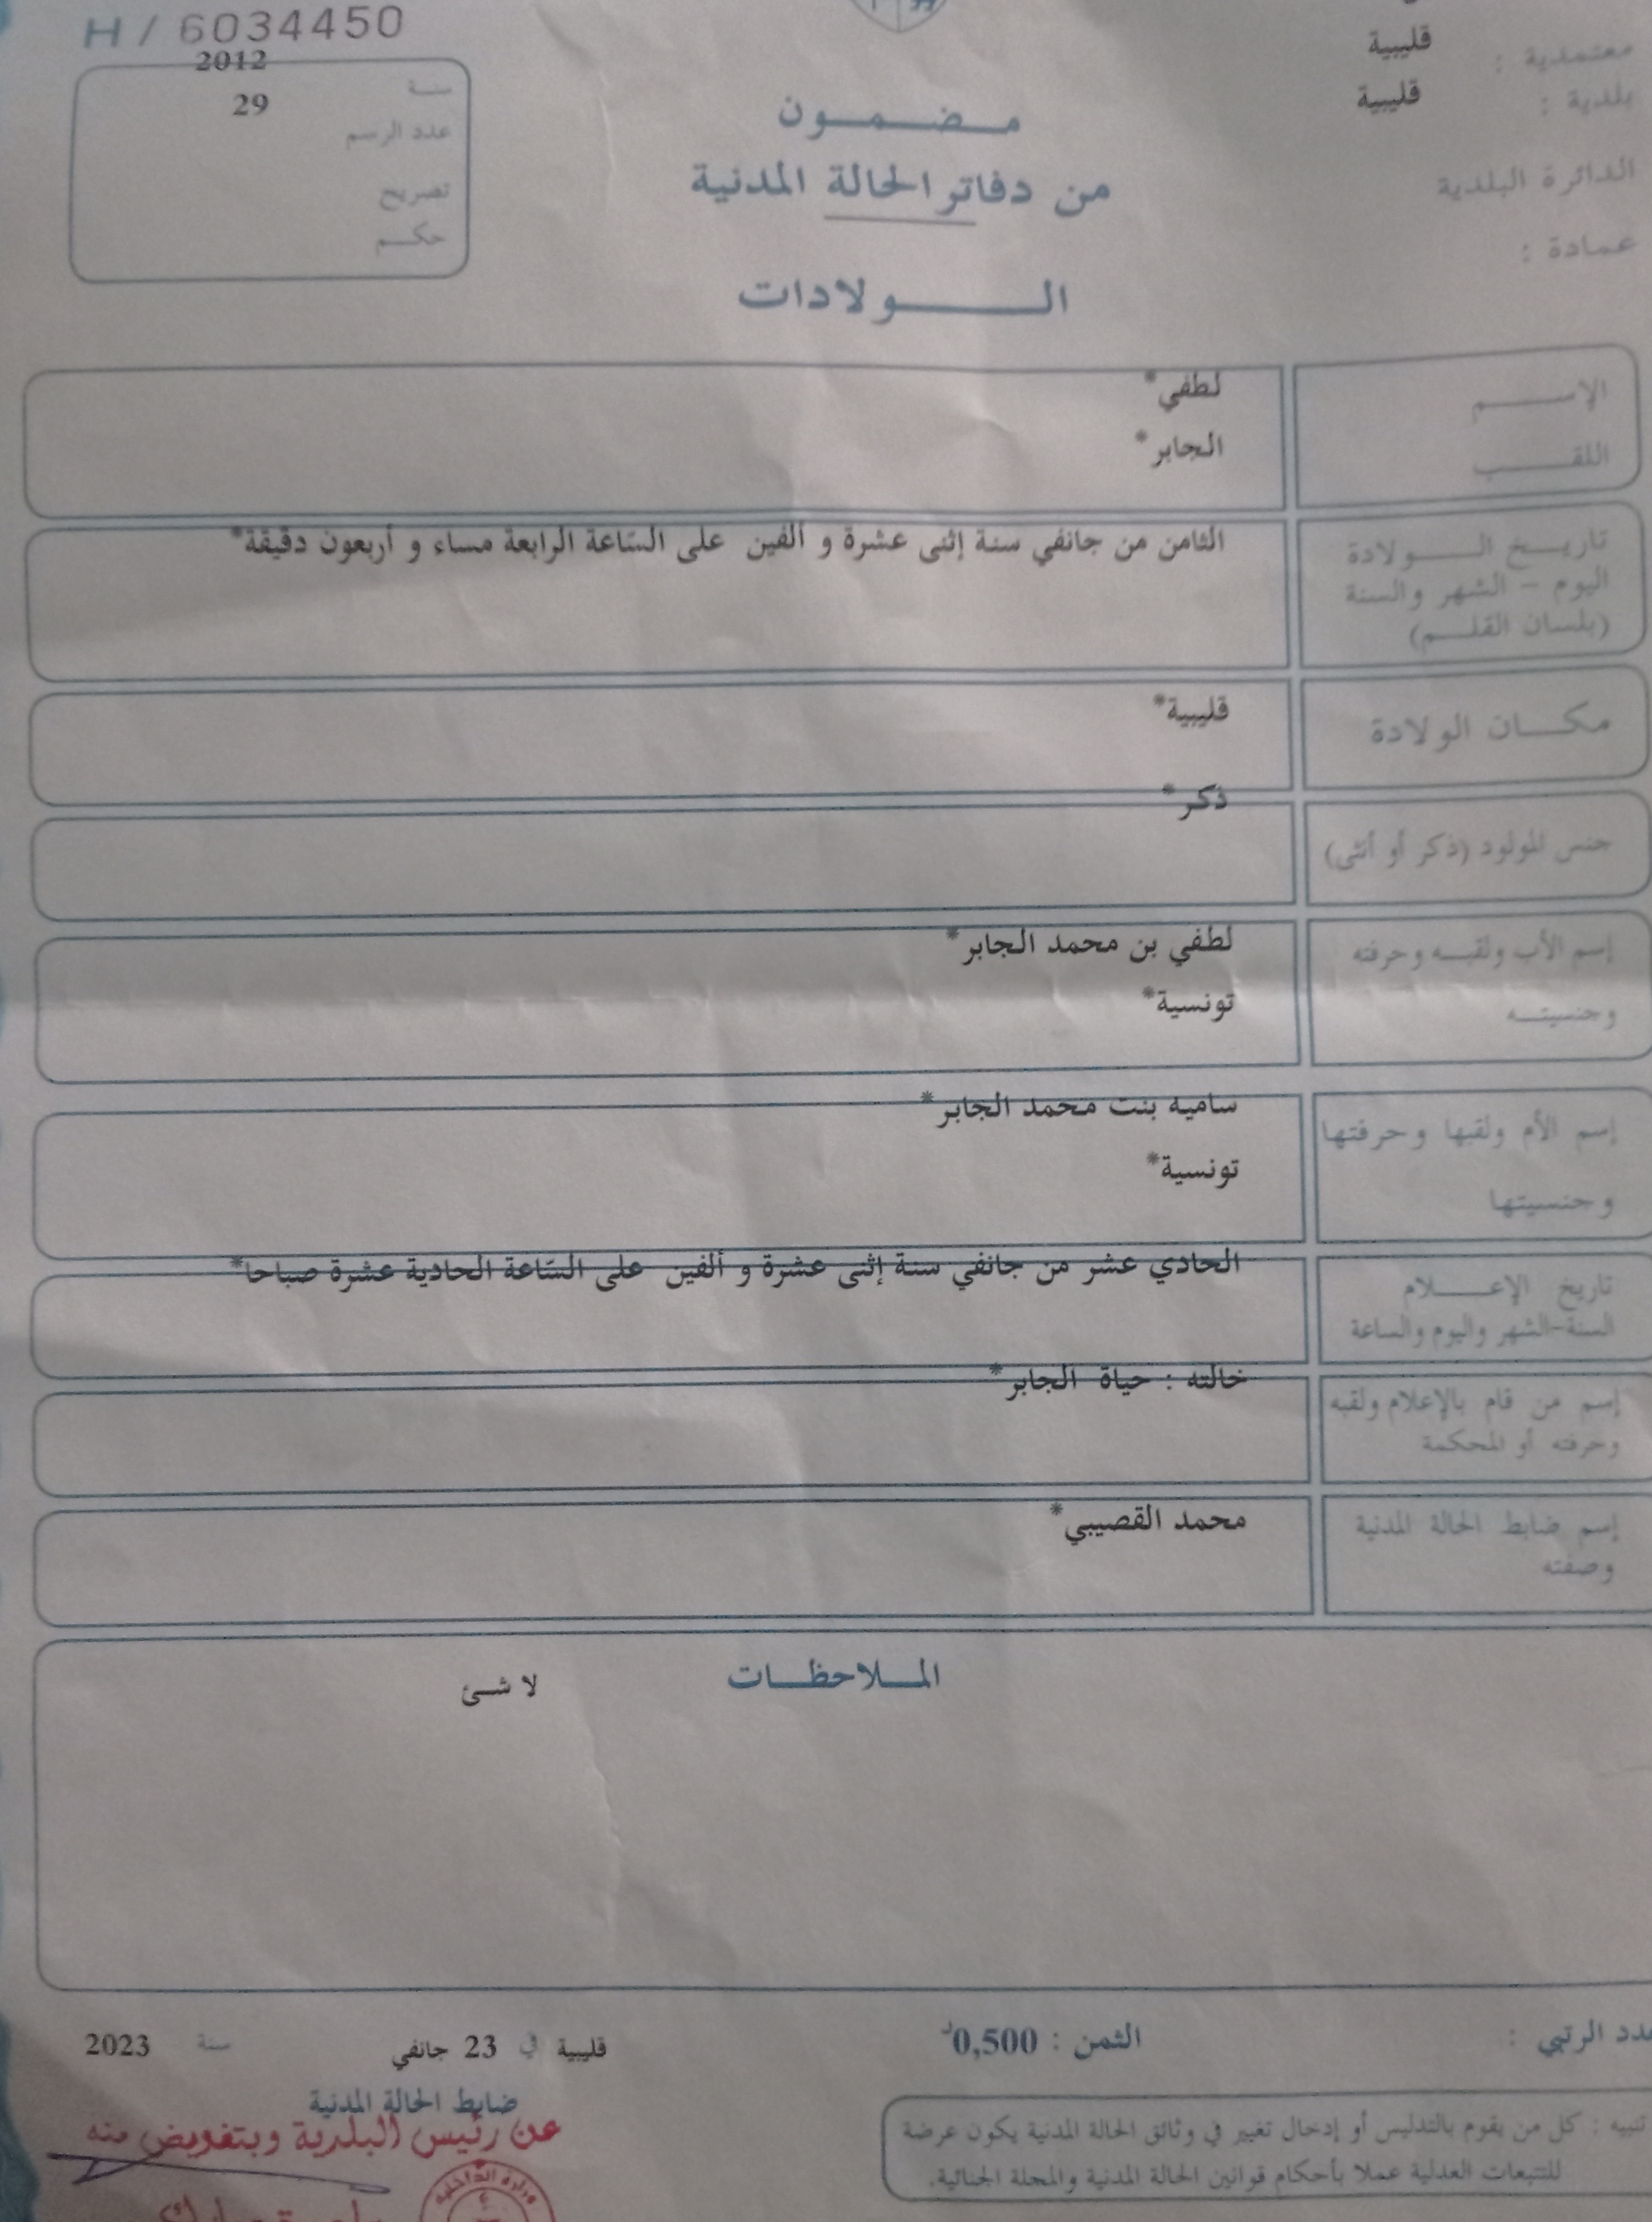 H / 6034450
معتمدية : قليبية
بلدية : قليبية
الدائرة البلدية
عمادة :
مضمون
من دفاتر الحالة المدنية
الولادات
سنة 2012
عدد الرسم 29
تصريح
حكم
الإسم لطفي*
اللقب الجابر*
تاريخ الولادة الثامن من جانفي سنة إثنى عشرة و ألفين على السّاعة الرابعة مساء و أربعون دقيقة*
اليوم - الشهر والسنة
(بلسان القلم)
مكان الولادة قليبية*
جنس المولود (ذكر أو أنثى) ذكر*
إسم الأب ولقبه وحرفته لطفي بن محمد الجابر*
وجنسيته تونسية*
إسم الأم ولقبها وحرفتها ساميه بنت محمد الجابر*
وجنسيتها تونسية*
تاريخ الإعلام الحادي عشر من جانفي سنة إثنى عشرة و ألفين على السّاعة الحادية عشرة صباحا*
السنة-الشهر واليوم والساعة
إسم من قام بالإعلام ولقبه خالته : حياة الجابر*
وحرفته أو المحكمة
إسم ضابط الحالة المدنية محمد القصيبي*
وصفته
الملاحظات
لا شئ
دد الرتبي :
الثمن : 0,500د
قليبية في 23 جانفي سنة 2023
ضابط الحالة المدنية
عن رئيس البلدية وبتفويض منه
وزارة الداخلية
تنبيه : كل من يقوم بالتدليس أو إدخال تغيير في وثائق الحالة المدنية يكون عرضة
للتتبعات العدلية عملا بأحكام قوانين الحالة المدنية والمجلة الجنائية.